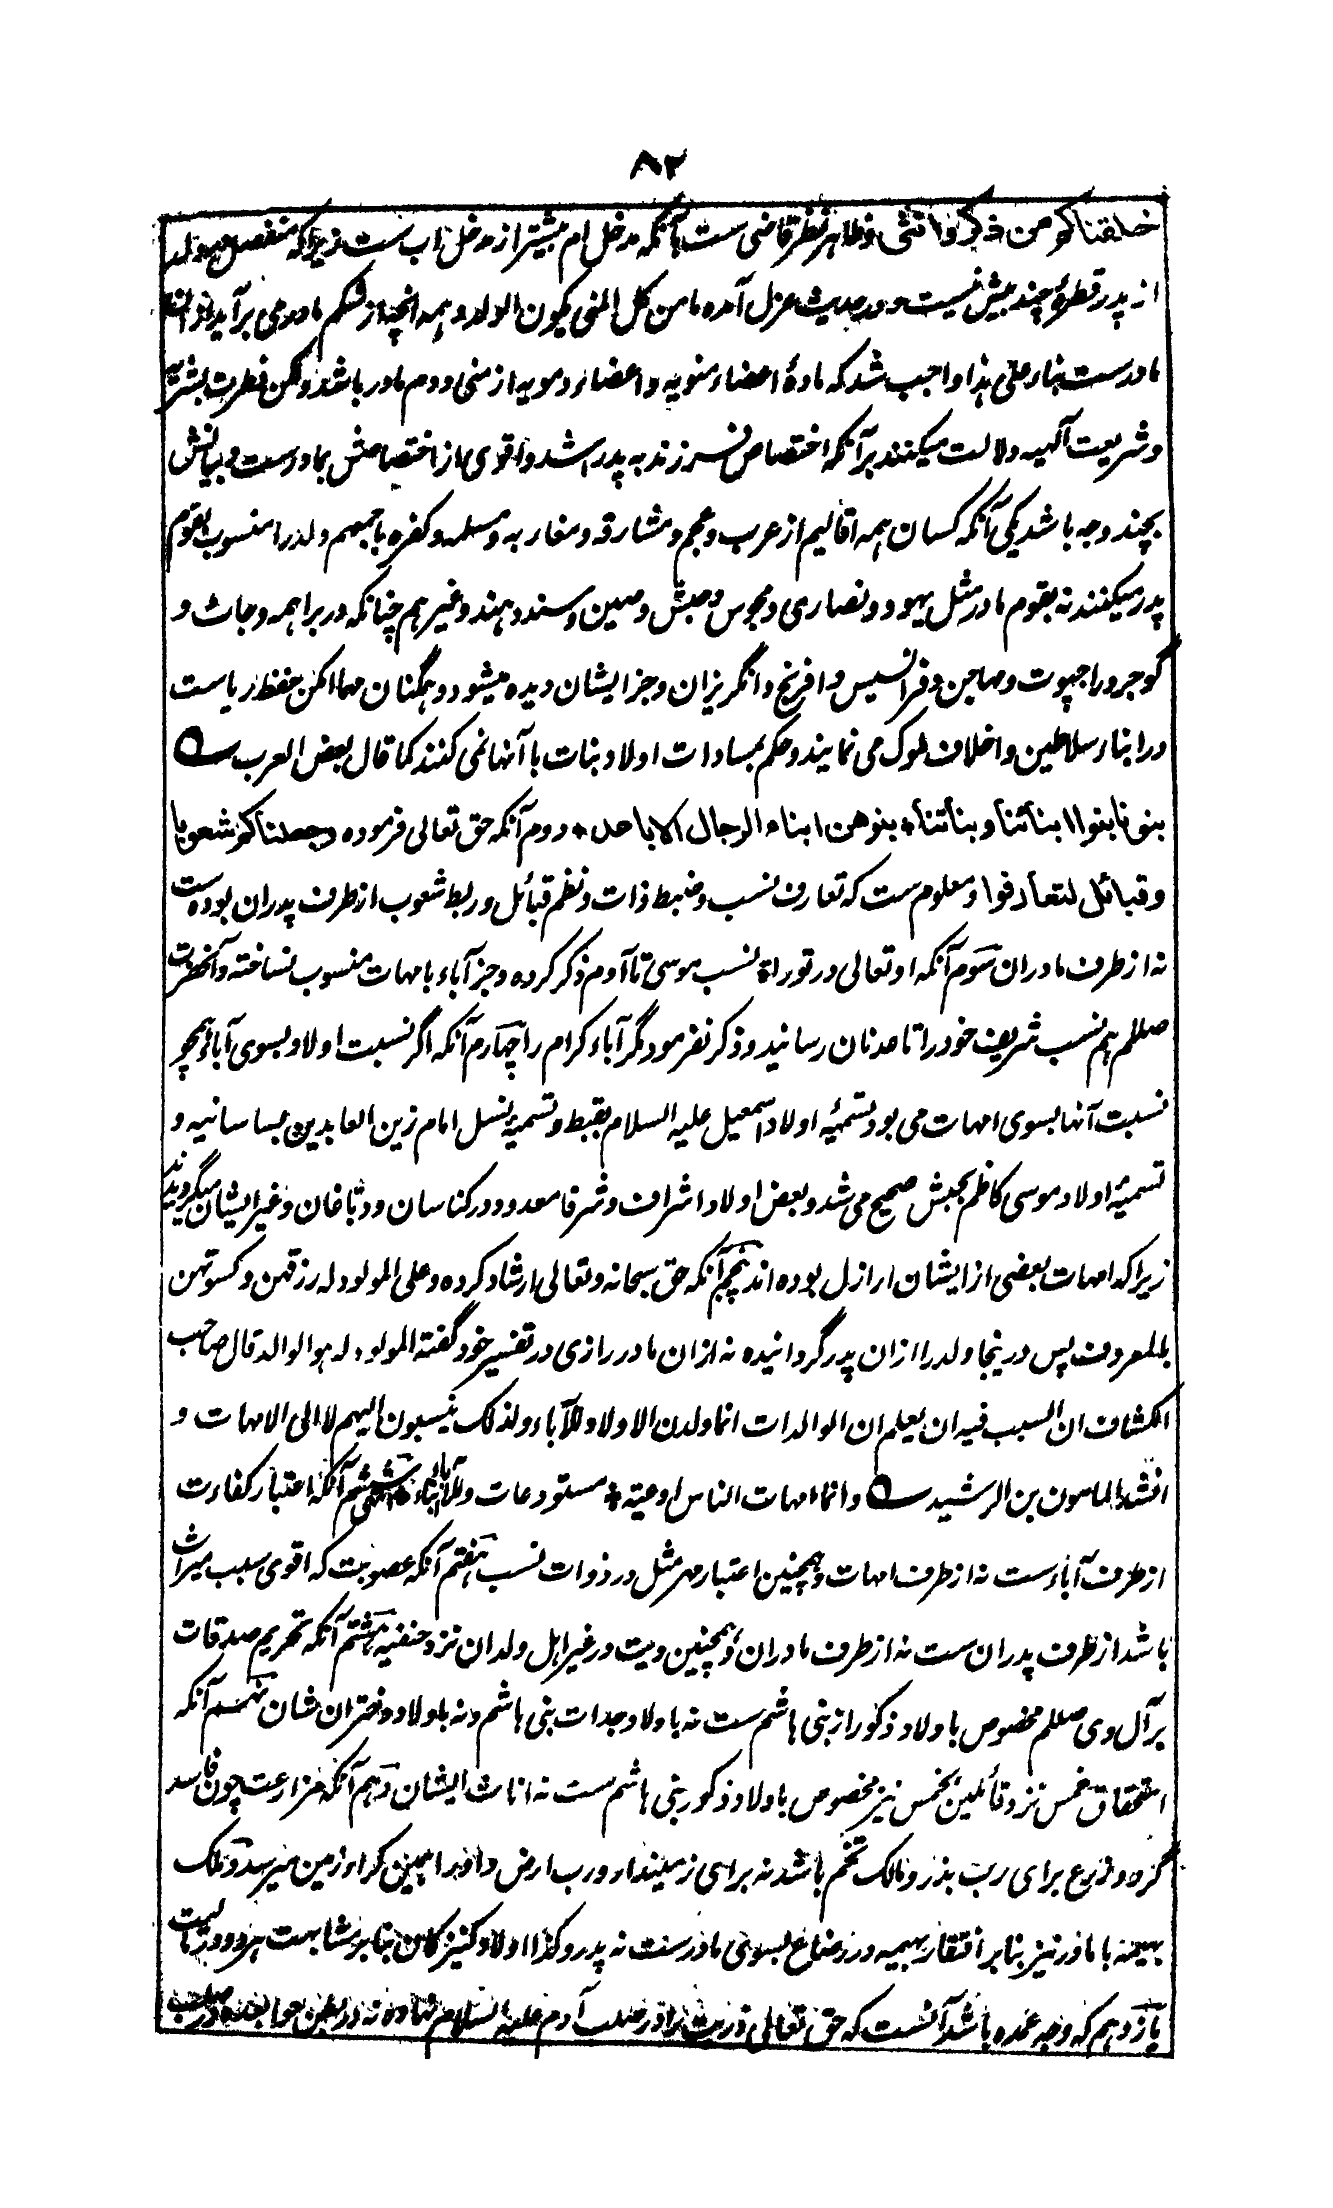 ۸۲
خلقناکم من ذکر وانثی و ظاهر نظر قاضی ست بآنکه مدخل ام بیشتر از مدخل اب ست زیراکه منفصل
از پدر قطرهٔ چند بیش نیست و در حدیث عزل آمده ما من کل المنی یکون الولد و همه انچه از شکم مادر می برآید
مادرست بناء علی هذا واجب شد که مادهٔ اعضاء منویه و اعضاء دمویه از منی و دم مادر باشد ولکن فطرت بشریه
و شریعت آلهیه دلالت میکنند برآنکه اختصاص فرزند به پدر اشد و اقوی ا از اختصاصش بمادرست و بیانش
بچند وجه باشد یکی آنکه کسان همه اقالیم از عرب و عجم و مشارقه و مغاربه و مسلمه و کفره باجمعهم ولد را منسوب بقوم
پدر میکنند نه بقوم مادر مثل یهود و نصاری و مجوس و حبش و صین و سند و هند و غیرهم چنانکه در براهمه و جاث و
گوجر و راجپوت و مهاجن و فرانسیس و افرنج و انگریزان و جز ایشان دیده میشود و همگنان مهما امکن حفظ ریاست
در ابناء سلاطین و اخلاف ملوک می نمایند و حکم بمساوات اولاد بنات با آنها نمی کنند کما قال بعض العرب ــه
بنونا بنوا ابنائنا وبناتنا * بنوهن ابناء الرجال الاباعد * دوم آنکه حق تعالی فرموده وجعلناکم شعوبا
وقبائل لتعارفوا و معلوم ست که تعارف نسب و ضبط ذات و نظم قبائل و ربط شعوب از طرف پدران بوده ست
نه از طرف مادران سوم آنکه او تعالی در توراة نسب موسی تا آدم ذکر کرده و جز آباء بامهات منسوب نساخته و آنحضرت
صللم هم نسب شریف خود را تا عدنان رسانید و ذکر نفرمود مگر آباء کرام را چهارم آنکه اگر نسبت اولاد بسوی آباء همچو
نسبت آنها بسوی امهات می بود تسمیهٔ اولاد اسمعیل علیه السلام بقبط و تسمیهٔ نسل امام زین العابدین بساسانیه و
تسمیهٔ اولاد موسی کاظم بحبش صحیح می شد و بعض اولاد اشراف و شرفا معدود در کناسان و دباغان و غیر ایشان میگردیدند
زیراکه امهات بعضی از ایشان اراذل بوده اند پنجم آنکه حق سبحانه و تعالی ارشاد کرده وعلی المولود له رزقهن وکسوتهن
بالمعروف پس درینجا ولد را ازان پدر گردانیده نه ازان مادر رازی در تفسیر خود گفته المولود له هو الوالد قال صاحب
الکشاف ان السبب فیه ان یعلم ان الوالدات انما ولدن الاولاد للآباء ولذلک ینسبون الیهم لا الی الامهات و
انشد للمامون بن الرشید ــه وانما امهات الناس اوعیة * مستودعات وللآباء ابناء * ششم آنکه اعتبار کفاءت
از طرف آباءست نه از طرف امهات و همچنین اعتبار مهر مثل در ذوات نسب هفتم آنکه عصوبت که اقوی سبب میراث
باشد از طرف پدران ست نه از طرف مادران و همچنین ویت در غیر اهل ولدان نزد حنفیه هشتم آنکه تحریم صدقات
بر آل وی صللم مخصوص باولاد ذکور از بنی هاشم ست نه باولاد جدات بنی هاشم و نه باولاد دختران شان نهم آنکه
استحقاق خمس نزد قائلین بخمس نیز مخصوص باولاد ذکور بنی هاشم ست نه اناث ایشان دهم آنکه مزارعت چون فاسد
گردد زرع برای رب بذر و مالک تخم باشد نه برای زمیندار و رب ارض و او را همین کرا زمین میرسد و ملک
بهیمه با مادر نیز بنا بر افتقار بهیمه در رضاع بسوی مادرست نه پدر و کذا اولاد کنیزکان بنا بر مشابهت هر دو در مالیت
یازدهم که وجه عمده باشد آنست که حق تعالی ذریت را در صلب آدم علیه السلام نهاده نه در بطن حوا بعده در صلب